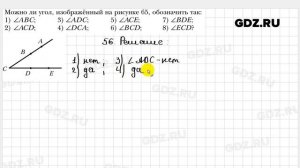 Можно ли угол, изображённый на рисунке 65, обозначить так:
1) ∠ABC; 3) ∠ADC; 5) ∠ACE; 7) ∠BDE;
2) ∠ACD; 4) ∠DCA; 6) ∠BCD; 8) ∠ECD?
56. Решение:
A
B
C
D
E
1) нет; 3) ∠ADC - нет
2) да; 4) да;
GDZ.RU
GDZ.RU
GDZ.RU